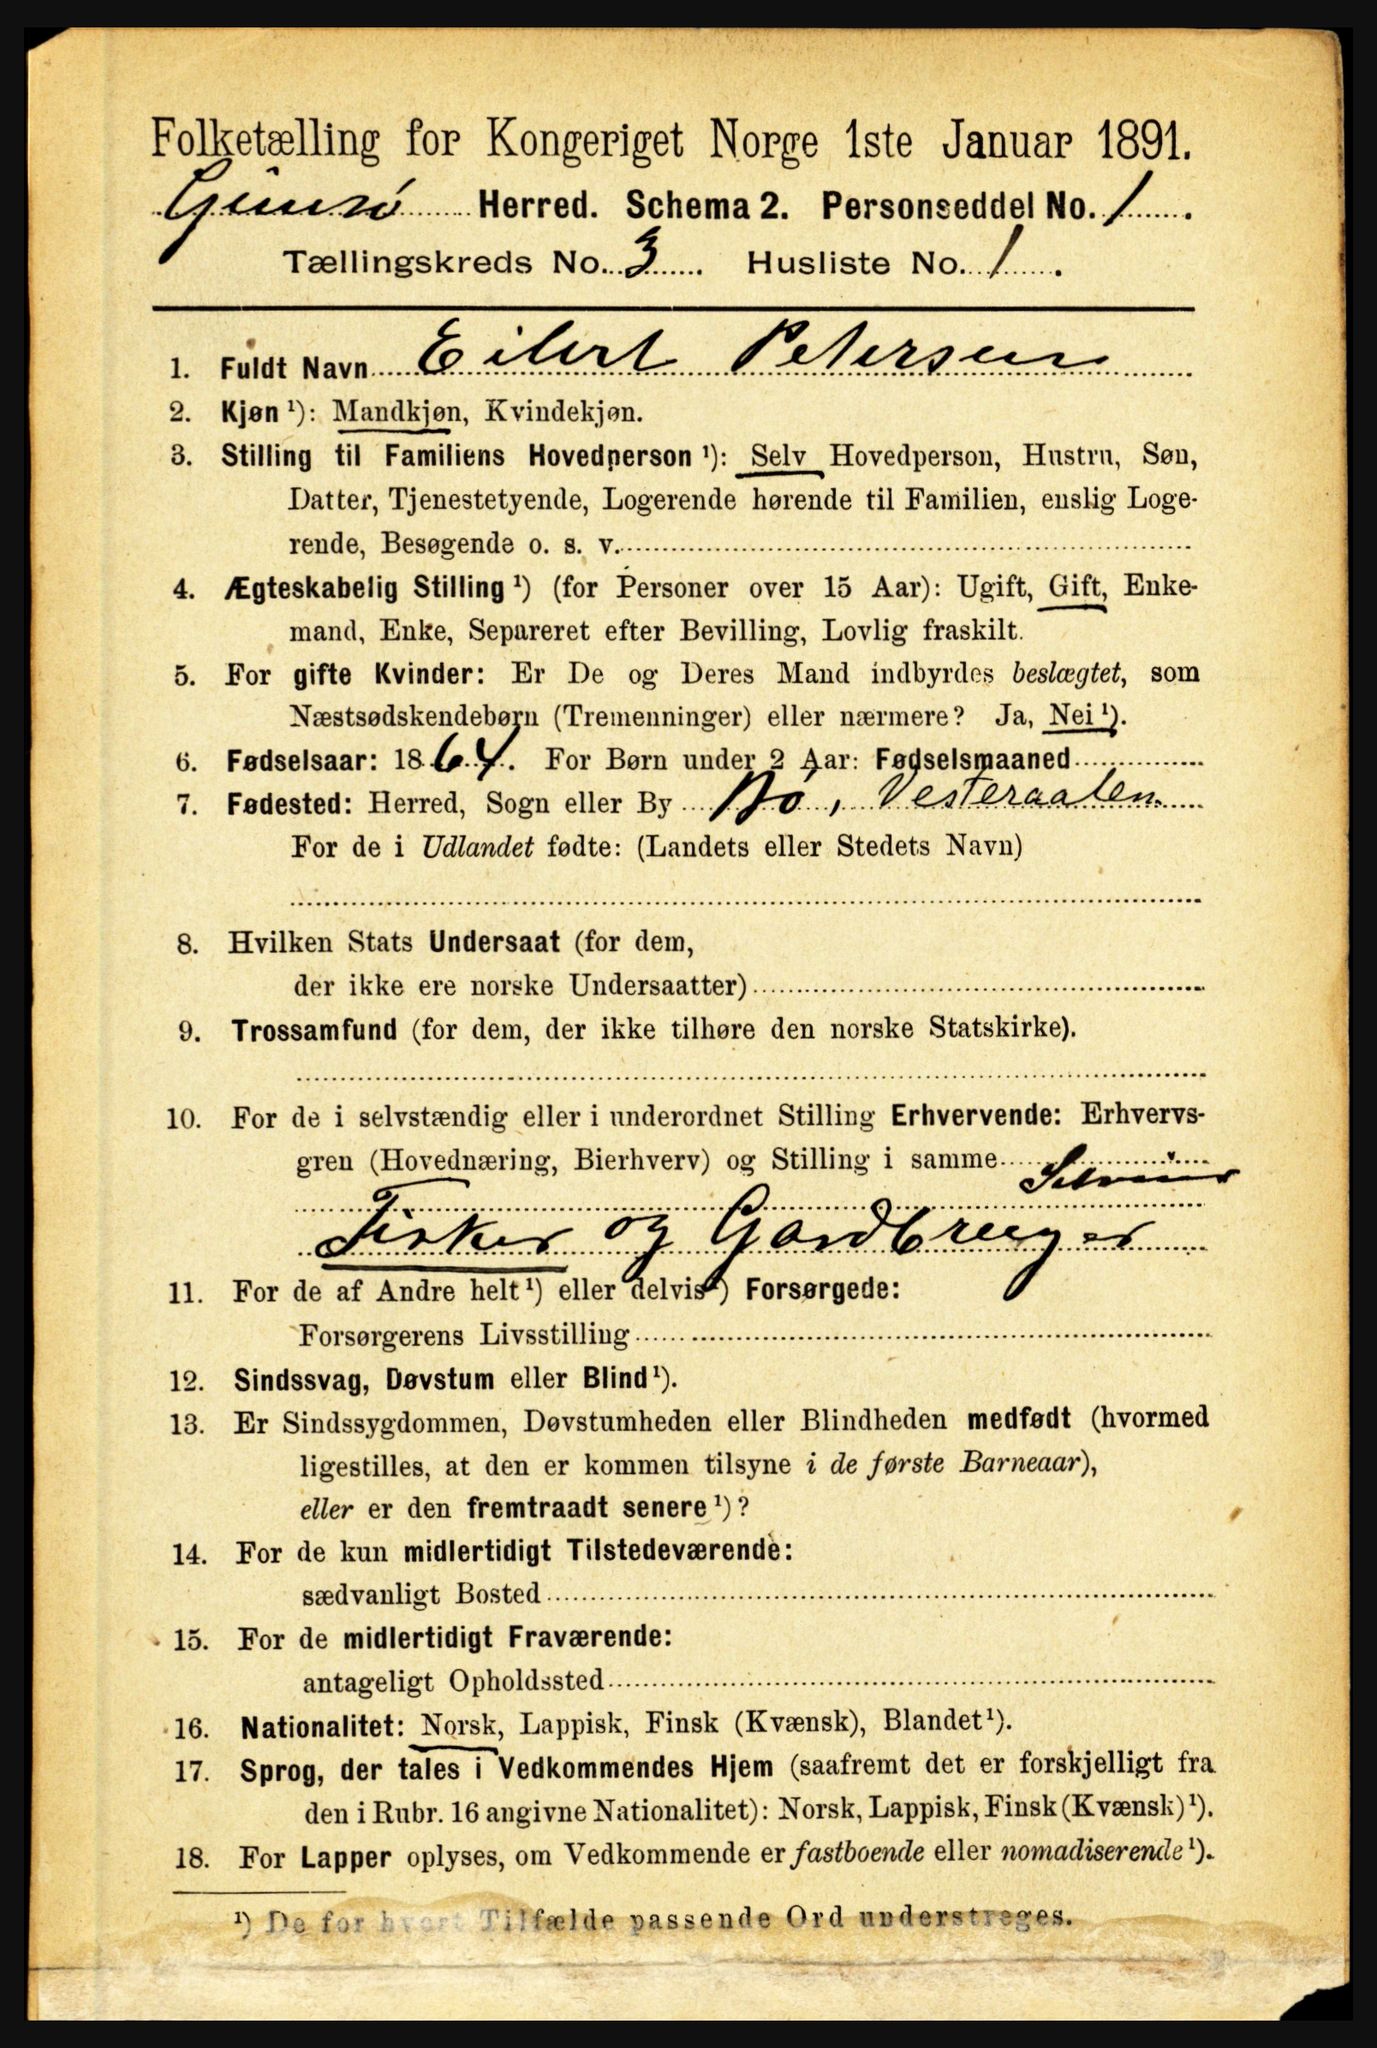 Folketælling for Kongeriget Norge 1ste Januar 1891.
Gimsø Herred. Schema 2. Personseddel No. 1.
Tællingskreds No. 3. Husliste No. 1.
1. Fuldt Navn Eilert Petersen
2. Kjøn ¹): Mandkjøn, Kvindekjøn.
3. Stilling til Familiens Hovedperson ¹): Selv Hovedperson, Hustru, Søn,
Datter, Tjenestetyende, Logerende hørende til Familien, enslig Loge-
rende, Besøgende o. s. v.
4. Ægteskabelig Stilling ¹) (for Personer over 15 Aar): Ugift, Gift, Enke-
mand, Enke, Separeret efter Bevilling, Lovlig fraskilt.
5. For gifte Kvinder: Er De og Deres Mand indbyrdes beslægtet, som
Næstsødskendebørn (Tremenninger) eller nærmere? Ja, Nei ¹).
6. Fødselsaar: 1864. For Børn under 2 Aar: Fødselsmaaned
7. Fødested: Herred, Sogn eller By Bø, Vesteraalen
For de i Udlandet fødte: (Landets eller Stedets Navn)
8. Hvilken Stats Undersaat (for dem,
der ikke ere norske Undersaatter)
9. Trossamfund (for dem, der ikke tilhøre den norske Statskirke).
10. For de i selvstændig eller i underordnet Stilling Erhvervende: Erhvervs-
gren (Hovednæring, Bierhverv) og Stilling i samme
Fisker og Gardbruger
11. For de af Andre helt ¹) eller delvis ¹) Forsørgede:
Forsørgerens Livsstilling
12. Sindssvag, Døvstum eller Blind ¹).
13. Er Sindssygdommen, Døvstumheden eller Blindheden medfødt (hvormed
ligestilles, at den er kommen tilsyne i de første Barneaar),
eller er den fremtraadt senere ¹)?
14. For de kun midlertidigt Tilstedeværende:
sædvanligt Bosted
15. For de midlertidigt Fraværende:
antageligt Opholdssted
16. Nationalitet: Norsk, Lappisk, Finsk (Kvænsk), Blandet ¹).
17. Sprog, der tales i Vedkommendes Hjem (saafremt det er forskjelligt fra
den i Rubr. 16 angivne Nationalitet): Norsk, Lappisk, Finsk (Kvænsk) ¹).
18. For Lapper oplyses, om Vedkommende er fastboende eller nomadiserende ¹).
¹) De for hvert Tilfælde passende Ord understreges.